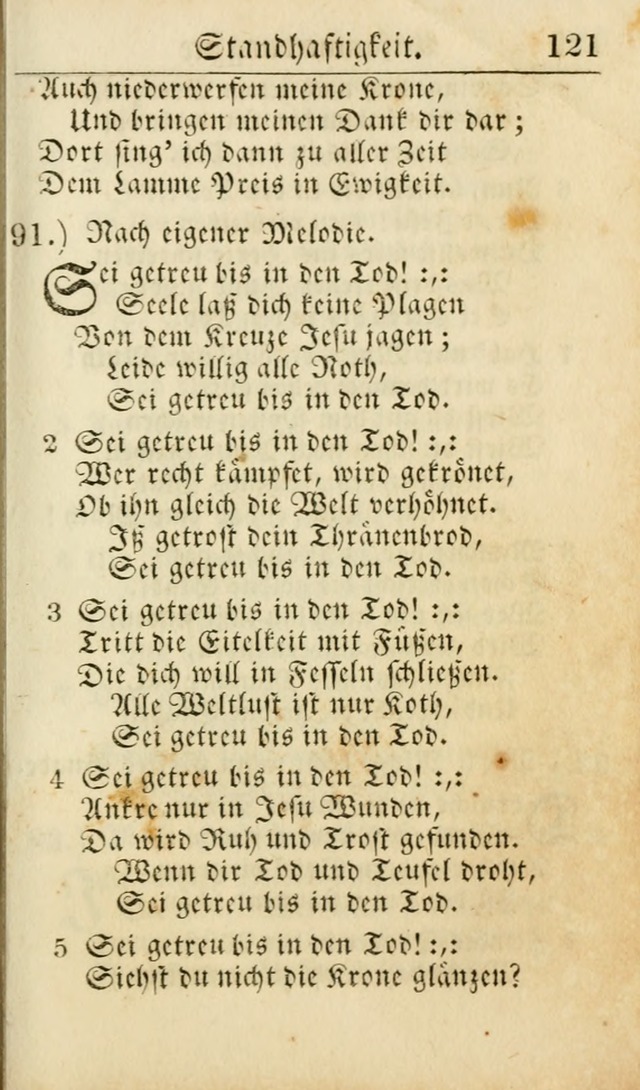 Standhaftigkeit. 121
Auch niederwerfen meine Krone,
Und bringen meinen Dank dir dar;
Dort sing' ich dann zu aller Zeit
Dem Lamme Preis in Ewigkeit.
91.) Nach eigener Melodie.
Sei getreu bis in den Tod! :,:
Seele laß dich keine Plagen
Von dem Kreuze Jesu jagen;
Leide willig alle Noth,
Sei getreu bis in den Tod.
2 Sei getreu bis in den Tod! :,:
Wer recht kämpfet, wird gekrönet,
Ob ihn gleich die Welt verhöhnet.
Iß getrost dein Thränenbrod,
Sei getreu bis in den Tod.
3 Sei getreu bis in den Tod! :,:
Tritt die Eitelkeit mit Füßen,
Die dich will in Fesseln schließen.
Alle Weltlust ist nur Koth,
Sei getreu bis in den Tod.
4 Sei getreu bis in den Tod! :,:
Ankre nur in Jesu Wunden,
Da wird Ruh und Trost gefunden.
Wenn dir Tod und Teufel droht,
Sei getreu bis in den Tod.
5 Sei getreu bis in den Tod! :,:
Siehst du nicht die Krone glänzen?